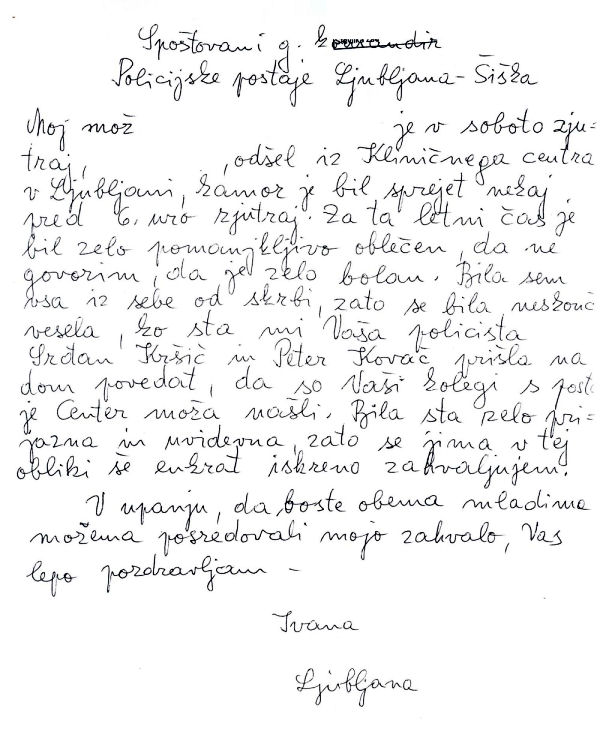 Spoštovani g. komandir
Policijske postaje Ljubljana-Šiška
Moj mož je v soboto zju=
traj, , odšel iz Kliničnega centra
v Ljubljani, kamor je bil sprejet nekaj
pred 6. uro zjutraj. Za ta letni čas je
bil zelo pomanjkljivo oblečen, da ne
govorim, da je zelo bolan. Bila sem
vsa iz sebe od skrbi, zato se bila neskonč
vesela, ko sta mi Vaša policista
Srđan Kršić in Peter Kovač prišla na
dom povedat, da so Vaši kolegi s posta
je Center moža našli. Bila sta zelo pri=
jazna in uvidevna, zato se jima v tej
obliki še enkrat iskreno zahvaljujem.
V upanju, da boste obema mladima
možema posredovali mojo zahvalo, Vas
lepo pozdravljam -
Ivana
Ljubljana